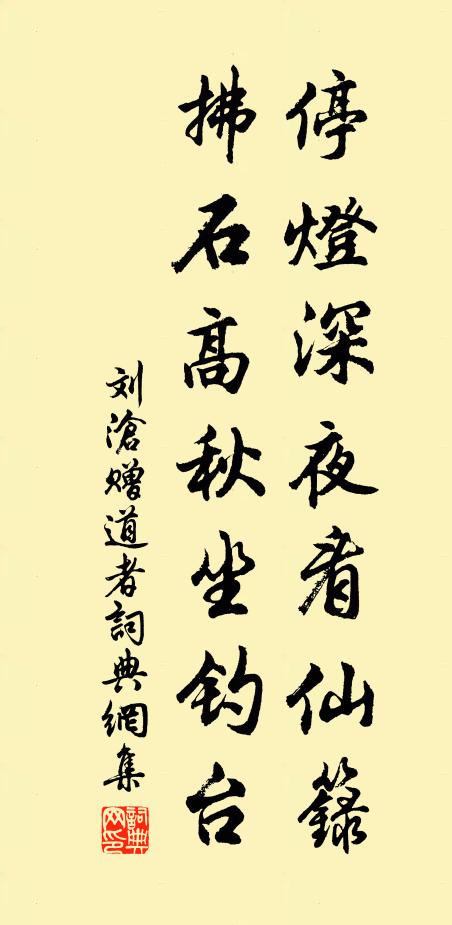 停燈深夜看仙籙
拂石高秋坐钓台
刘滄赠道者詞典網集
詞典網印